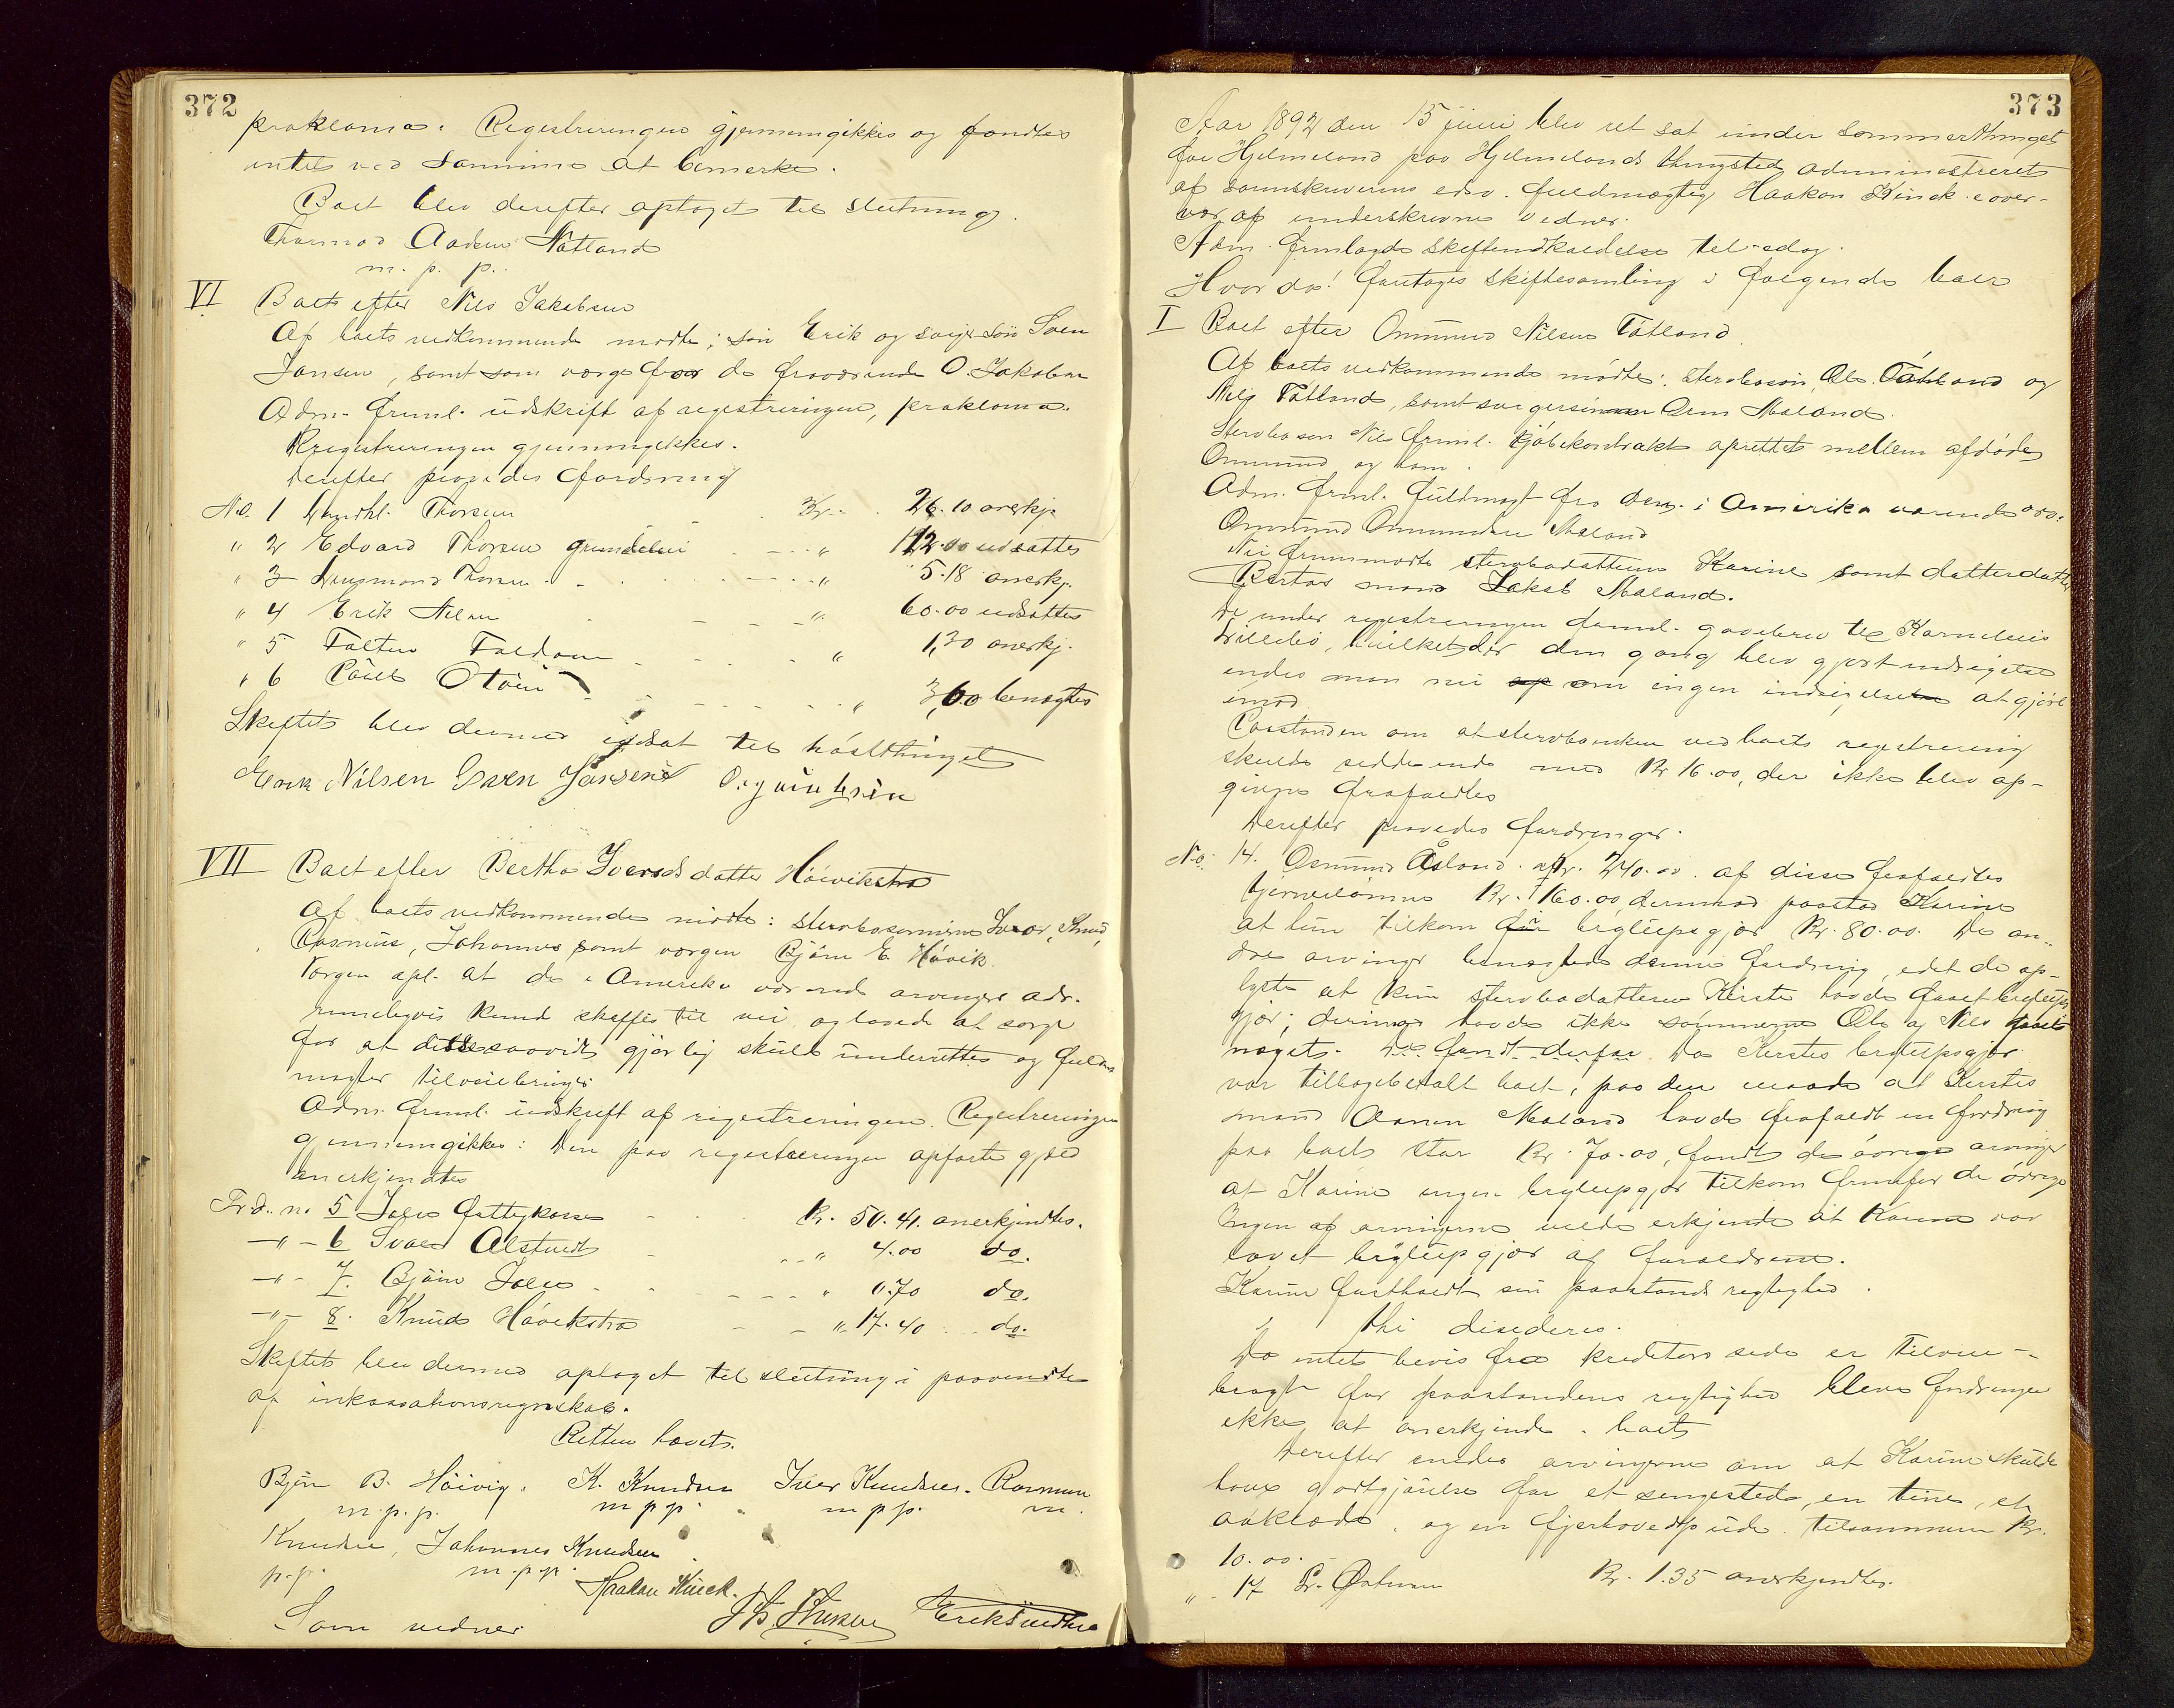 372
proklama. Registreringen gjennemgikkes og fandtes
intet ved samme at bemerke.
Boet blev derefter optaget til slutning.
Thormod Aadsen Natland
m. p. p.
VI Boet efter Nils Jakobsen
Af boets vedkommende mødte: søn Erik og svigersøn Sven
Jansen, samt som verge for de fraværende O. Jakobsen
Adm. freml. udskrift af registreringen, proklama.
Registreringen gjennemgikkes.
Derefter prøvedes fordring
No. 1 Landhl. Thorsen Kr. 26.10 anerkj.
" 2 Edvard Thorsen " 112.00 udsattes
" 3 Thorsen " 5.18 anerkj.
" 4 Erik Nilsen " 60.00 udsattes
" 5 Falten " 1,30 anerkj.
" 6 Poul " 3,60 benegtes
Skiftet blev dermed udsat til høstthinget
Erik Nilsen Sven Jansen O. Jakobsen
VII Boet efter Bertha Iversdatter Høivikstrø
Af boets vedkommende mødte: sterbosønnerne Iver, Knud,
Rasmus, Johannes, samt vergen Bjørn E. Høivik
Vergen opl. at de i Amerika værende arvingers adr.
rimeligvis kund skaffes til vei og lovede at sørge
for at disse saavidt gjørlig skuld underrettes og fuld-
magter tilveiebringes
Adm. freml. udskrift af registreringen. Registreringen
gjennemgikkes: Den paa registreringen opførte gjæld
anerkjendtes
Frd. n. 5 Joles fattigkasse Kr. 50.41 anerkjendtes.
—"— 6 Ivar " 4.00 do.
—"— 7. Bjørn Jøle " 0.70 do.
—"— 8. Knud Høivikstrø " 17.40 do.
Skiftet blev dermed optaget til slutning i paavente
af inkassationsregnskab.
Retten hævet.
Bjørn B. Høivig. K. Knudsen Iver Knudsen. Rasmus
m. p. p. m p p. m p p. m.
Knudsen, Johannes Knudsen
p. p. m. p. p.
Haakon Kinck.
Som vidner
373
Aar 1892 den 15 juni blev ret sat under sommerthinget
for Hjelmeland paa Hjelmelands thingsted administreret
af sorenskriverens edsv. fuldmægtig Haakon Kinck i over-
vær af underskrevne vidner.
Adm. fremlagde skifteindkaldelse til idag.
Hvor da! foretoges skiftesamling i følgende boer
I Boet efter Ommund Nilsen Tøtland.
Af boets vedkommende mødte: sterbosøn, Ole Tøtland og
Nils Tøtland, samt svigersøn Orm Meland.
Sterbosøn Nils freml. kjøbekontrakt oprettet mellem afdøde
Ommund og ham.
Adm. freml. fuldmagt fra den i Amerika værende arv.
Ommund Ommundsen Meland
Nu fremmødte sterbodatteren Karine samt datterdatter
Bertas mand Jakob Meland.
De under registreringen freml. gavebrev til Kornelius
Lillebø, hvilket der den gang blev gjort indsigelse
enedes man nu om ingen indsigelse at gjøre
imod
Paastanden om at sterboenken ved boets registrering
skulde sidde inde med Kr. 16.00, der ikke blev op-
givne frafaldtes
Derefter prøvedes fordringer.
No. 14. Osmund Åsland Kr. 240.00. af disse frafaldtes
Kr. 160.00 dermod paastod Karine
at hun tilkom bryllupsgjør Kr. 80.00. De an-
dre arvinger benegtede denne fordring, idet de op-
lyste at kun sterbodatteren Kirste havde faaet bryllups
gjør; derimod havde ikke sønnerne Ole og Nils faaet
noget. Det fandt derfor Da Kirstes bryllupsgjør
var tilbagebetalt boet, paa den maade at Kirstes
mand Meland havde frafaldt en fordring
paa boet stor Kr. 70.00, fandt de øvrige arvinger
at Karine ingen bryllupsgjør tilkom fremfor de øvrige
Ingen af arvingerne vilde erkjende at Karine var
lovet bryllupgjør af forældrene.
Karine fastholdt sin paastands rigtighed.
thi desideres.
Da intet bevis fra kreditors side er tilveie-
bragt for paastandens rigtighed blev fordringen
ikke at anerkjende i boet
Derefter enedes arvingerne om at Karine skulde
have godtgjørelse for et sengested, en tine, et
aaklæde, og en fjerhovedpude tilsammen Kr.
10.00.
" 17 L. Østman Kr. 1.35 anerkjendtes.